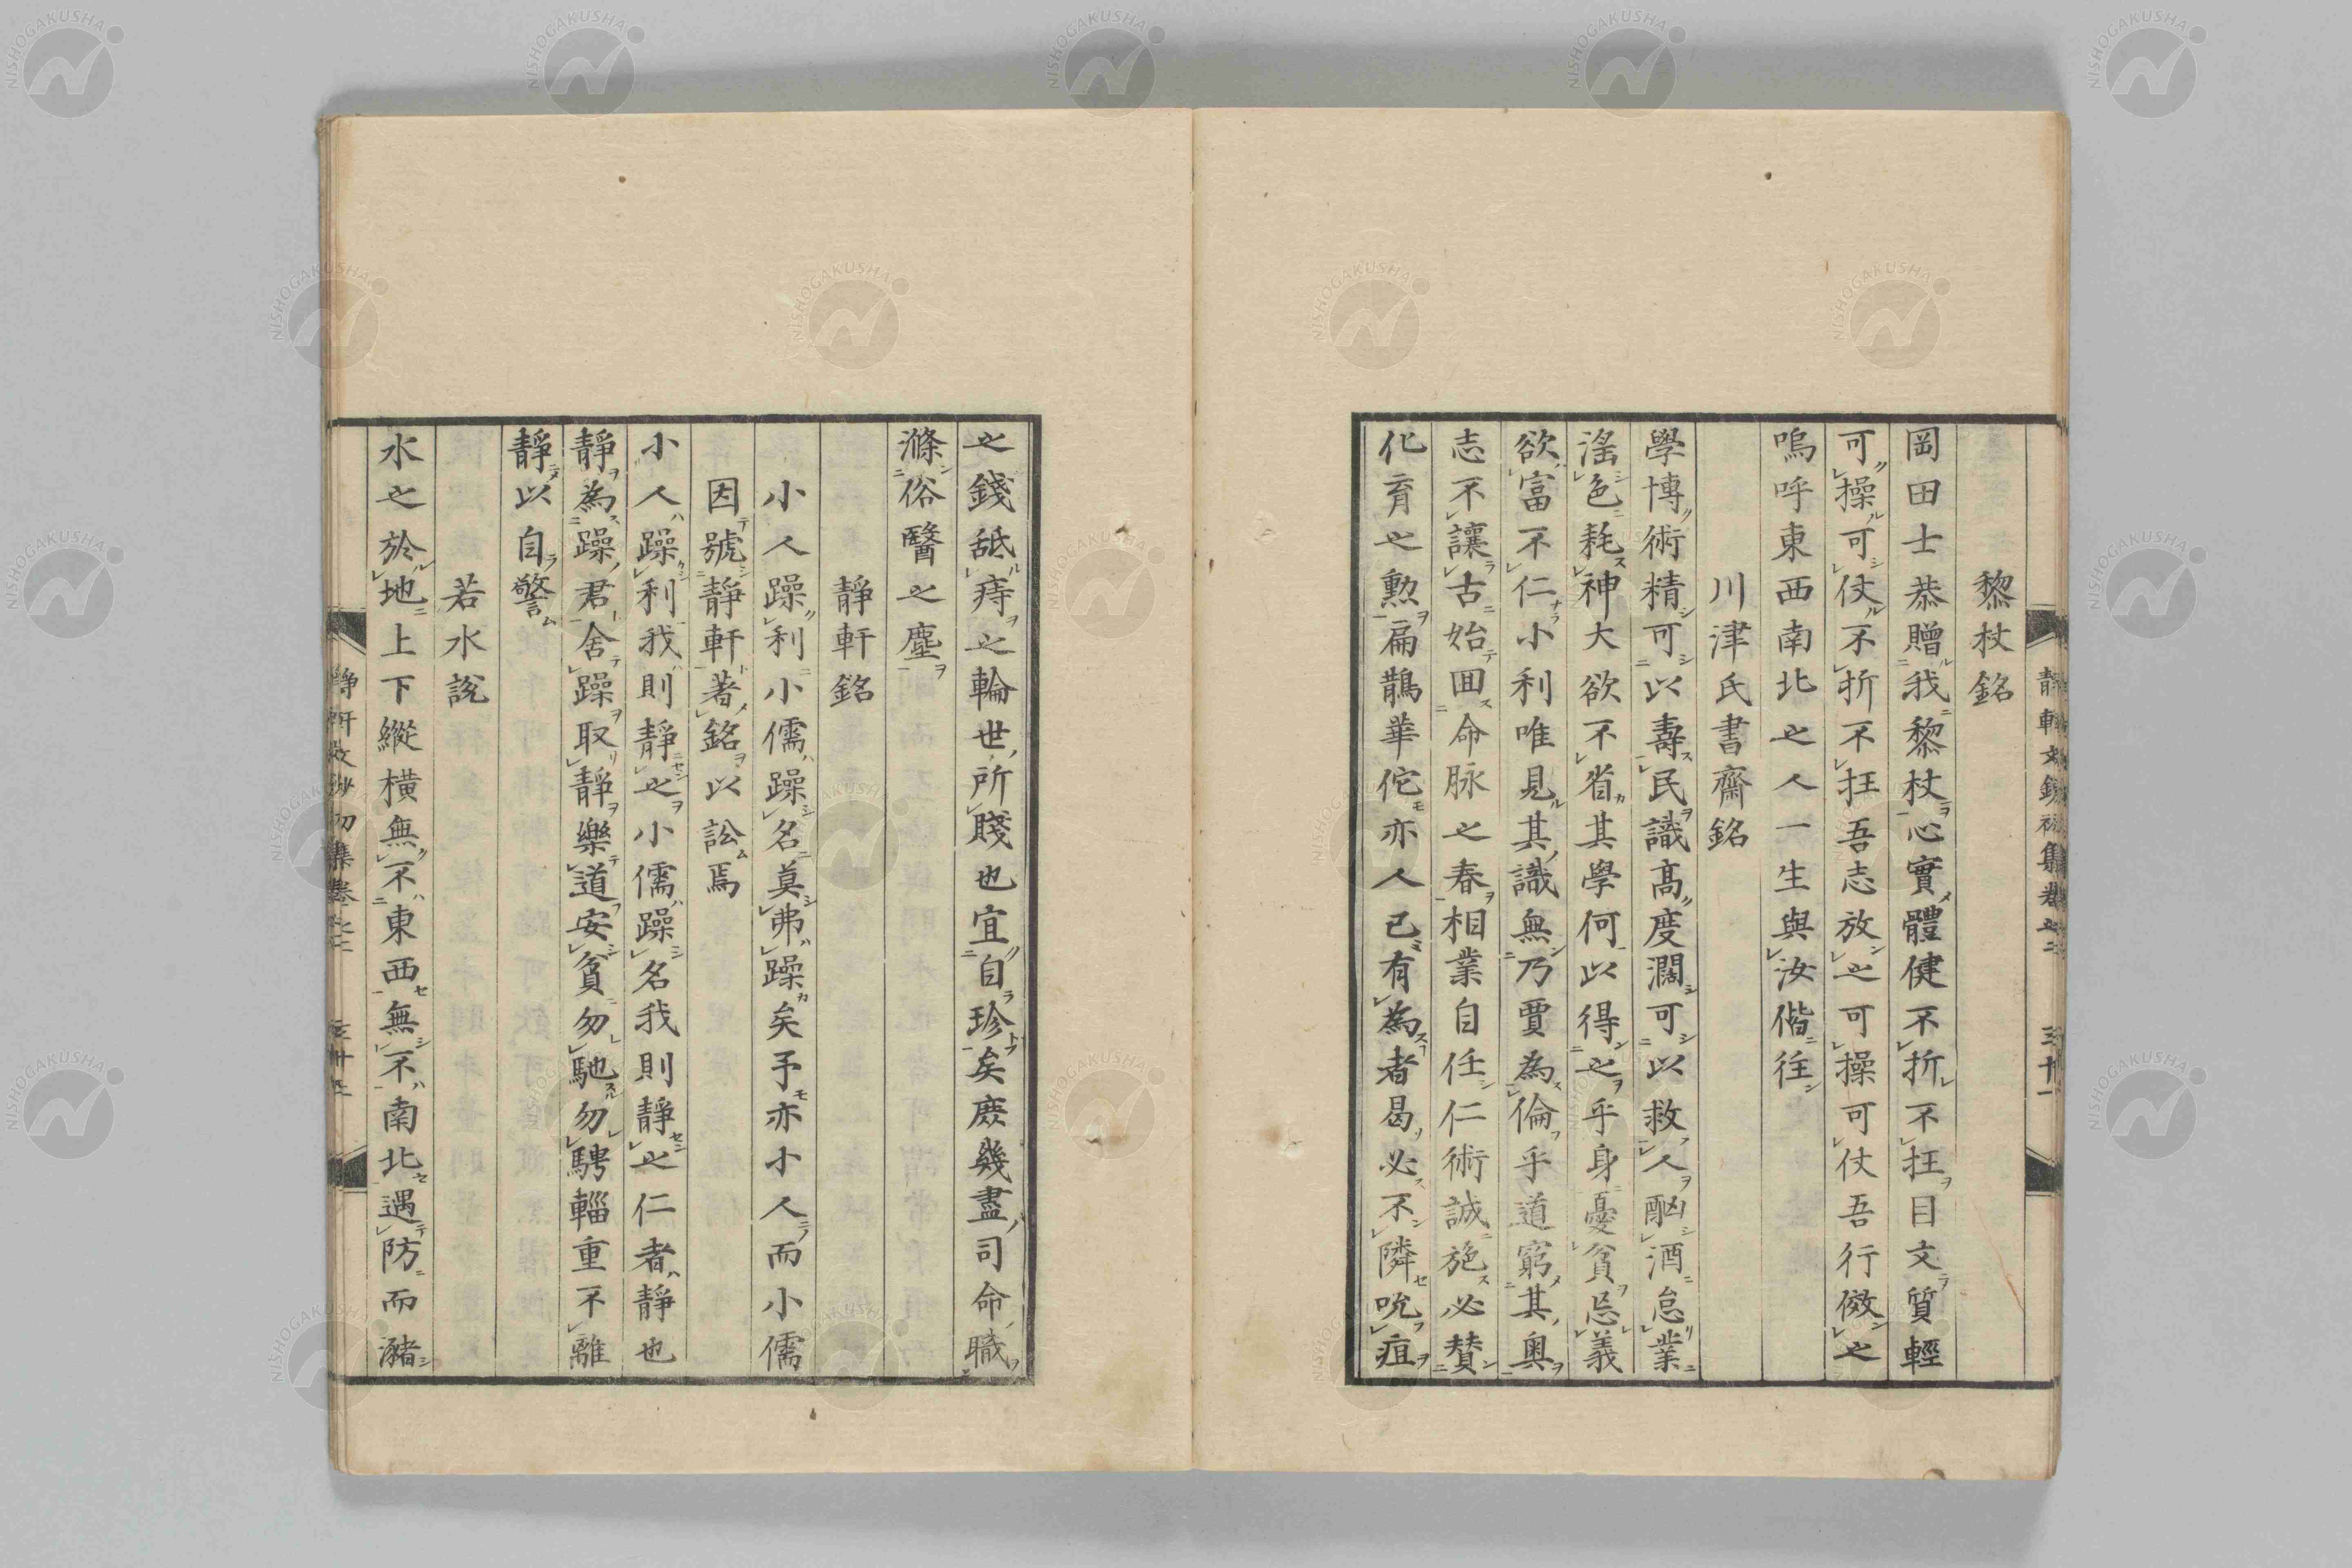 黎杖銘
岡田士恭贈我黎杖心實體健不折不抂目文質輕
可操可仗不折不抂吾志放之可操可仗吾行傚之
嗚呼東西南北之人一生與汝偕往
川津氏書齋銘
學博術精可以壽民識高度濶可以救人酗酒怠業
滛色耗神大欲不省其學何以得之乎身憂貧忌義
欲富不仁小利唯見其識無乃賈為倫乎道窮其奧
志不讓古始囬命脉之春相業自任仁術誠施必賛
化育之勲扁鵲華佗亦人已有為者曷必不隣吮疽
之錢舐痔之輪世所賤也宜自珍矣庶幾盡司命職
滌俗醫之塵
靜軒銘
小人躁利小儒躁名莫弗躁矣予亦小人而小儒
因號靜軒著銘以訟焉
小人躁利我則靜之小儒躁名我則靜之仁者靜也
靜為躁君舍躁取靜樂道安貧勿馳勿騁輜重不離
靜以自警
若水說
水之於地上下縱橫無不東西無不南北遇防而瀦
靜軒文鈔初集卷之二
NISHOGAKUSHA